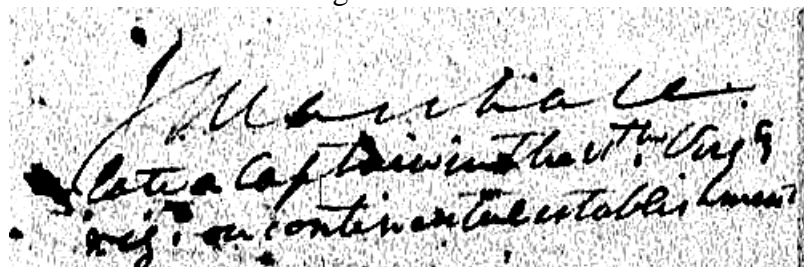 J Marshall
late a Captain in the 11th. Virga
regt. on continental establishment